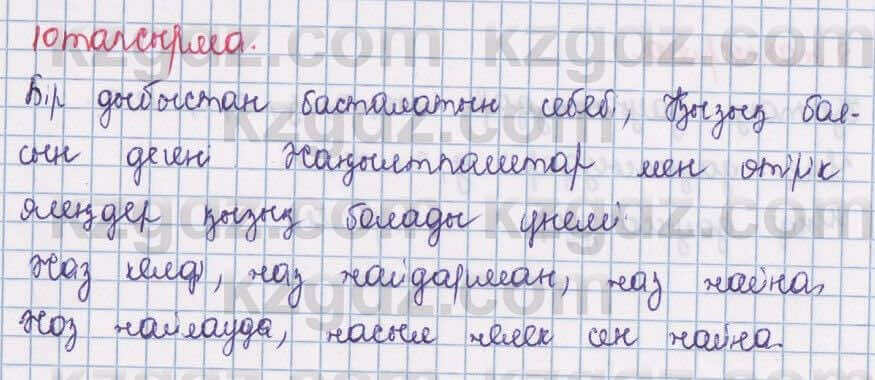 10 тапсырма.
Бір дыбыстан басталатын себебі, Қызық бол-
сын дегені Жаңылтпаштар мен өтірік
өлеңдер қызық болады үнемі
Жаз келді, жаз жайдарман, жаз жайна,
Жаз жайлауда, жасыл желек сен жайна.
kzgdz.com